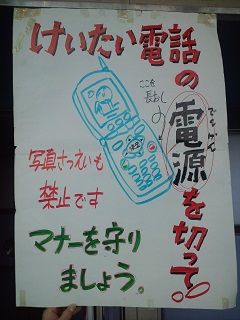 けいたい電話
の電源を切って!!
でんげん
ここを
長おし
写真さつえいも
禁止です
マナーを守り
ましょう。